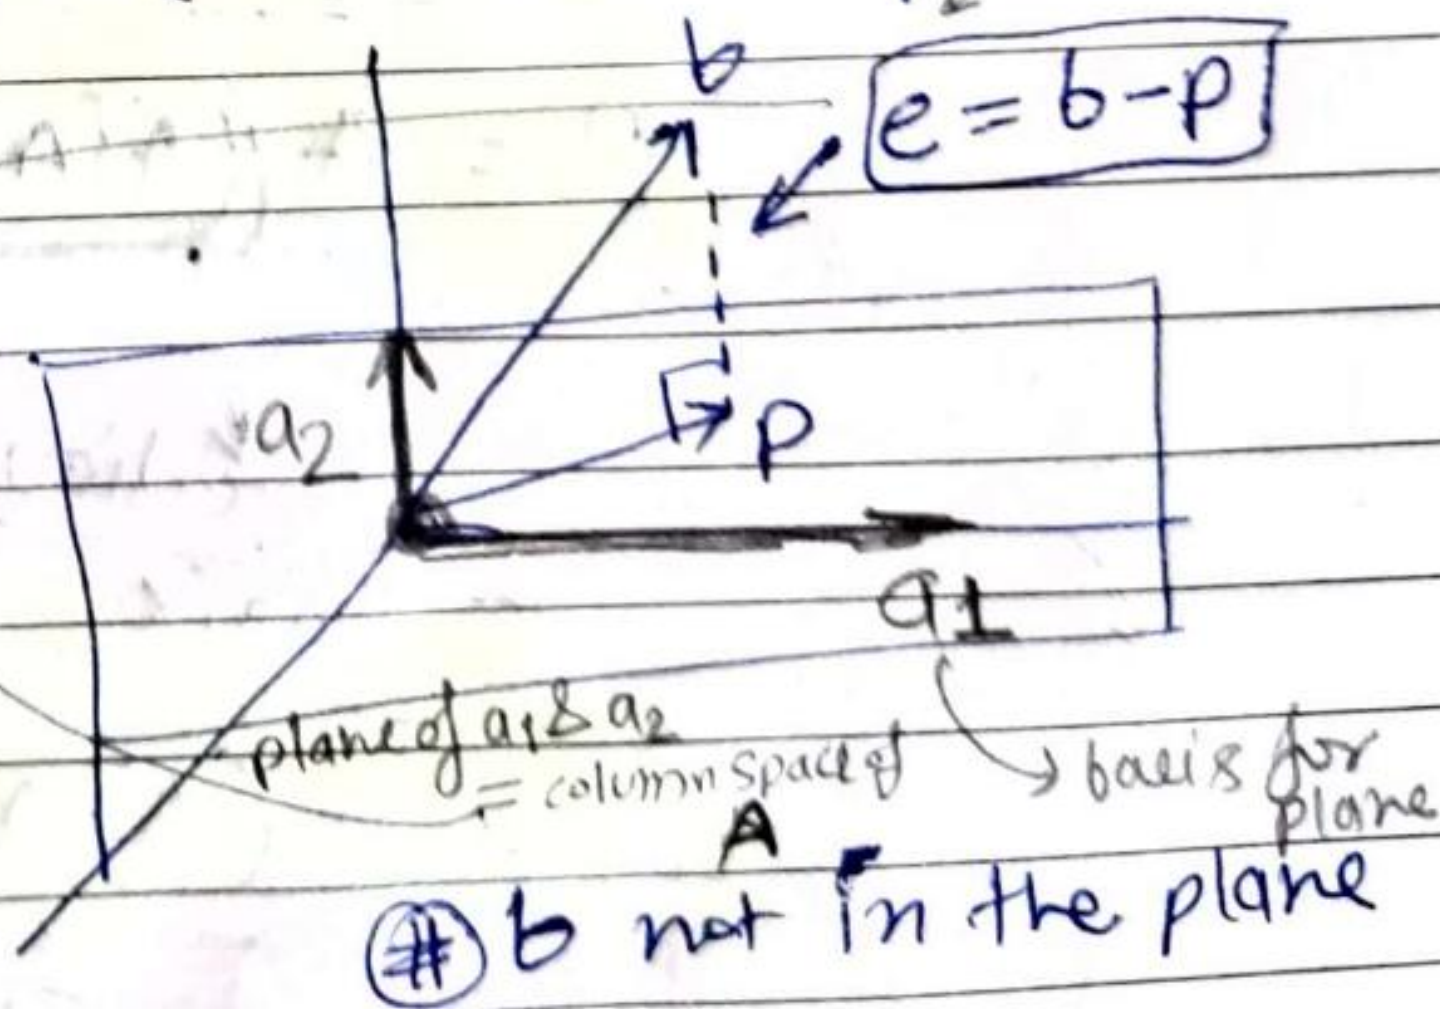 b
e = b-p
a2
p
a1
plane of a1 & a2
= column space of
A
basis for
plane
# b not in the plane